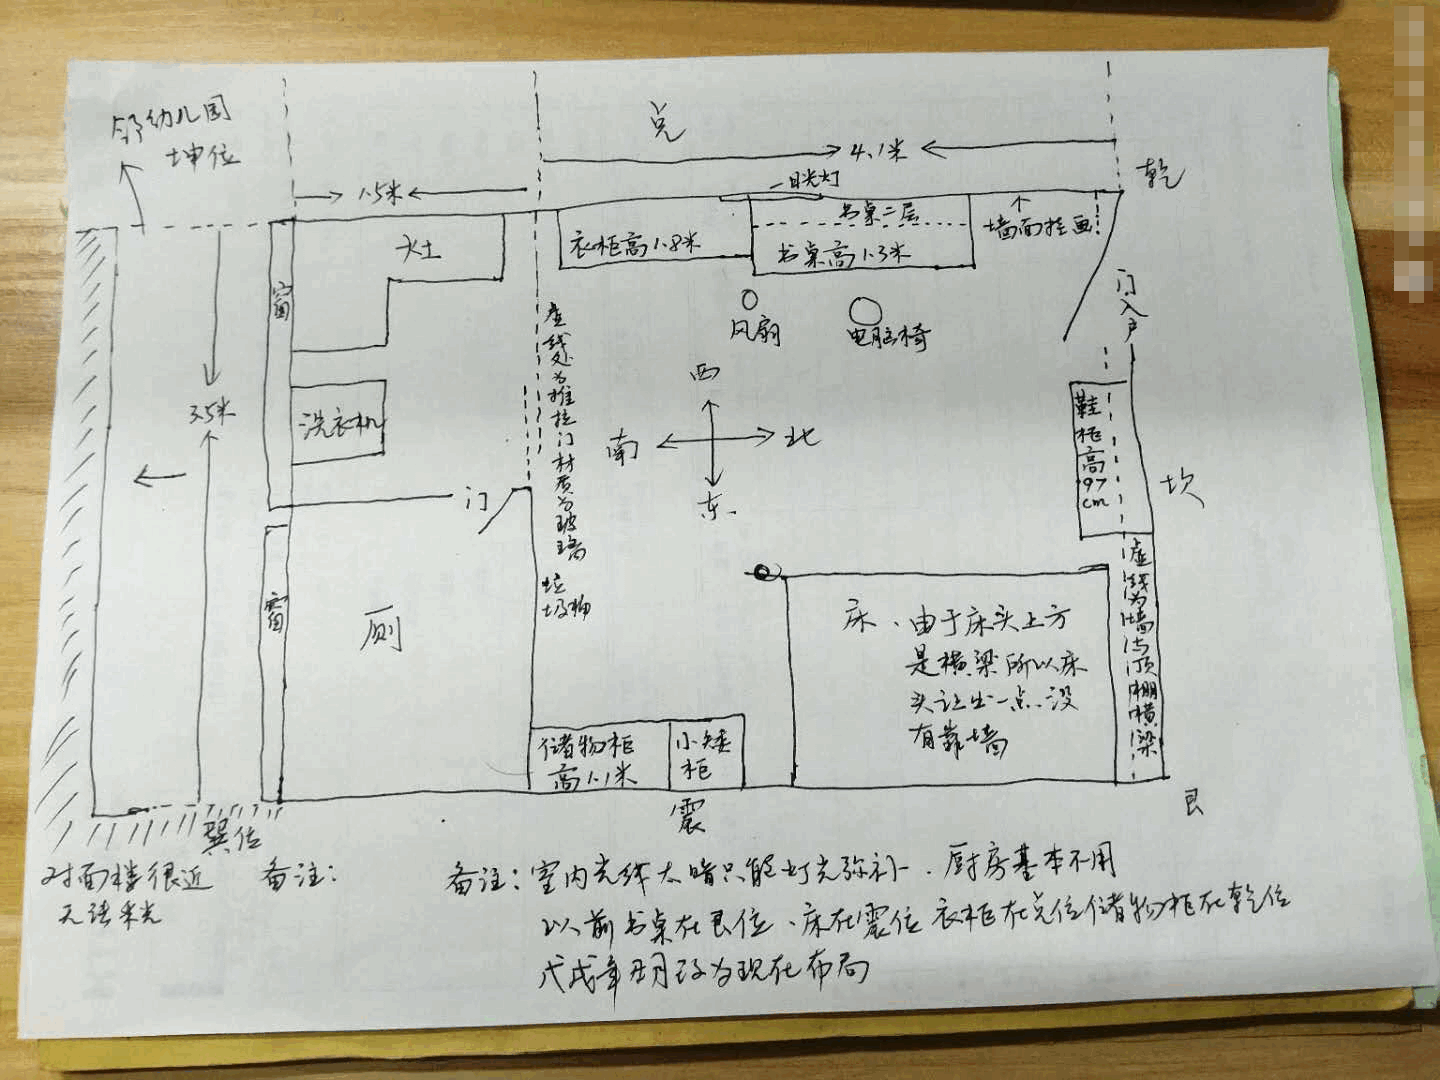 邻幼儿园
坤位
兑
4.1米
乾
1.5米
日光灯
灶
衣柜高1.8米
书桌二层
书桌高1.3米
墙面挂画
窗
门入户
风扇
电脑椅
虚线处为推拉门材质为玻璃
西
南
北
东
3.5米
洗衣机
鞋柜高97cm
坎
门
窗
厕
垃圾桶
床、由于床头上方
是横梁所以床
头让出一点没
有靠墙
虚线为墙与顶棚横梁
储物柜
高1.1米
小矮柜
震
艮
巽位
对面楼很近
无法采光
备注：
备注：室内光线太暗只能灯光弥补、厨房基本不用
以前书桌在艮位、床在震位 衣柜在兑位储物柜在乾位
戊戌年 丑月改为现在布局